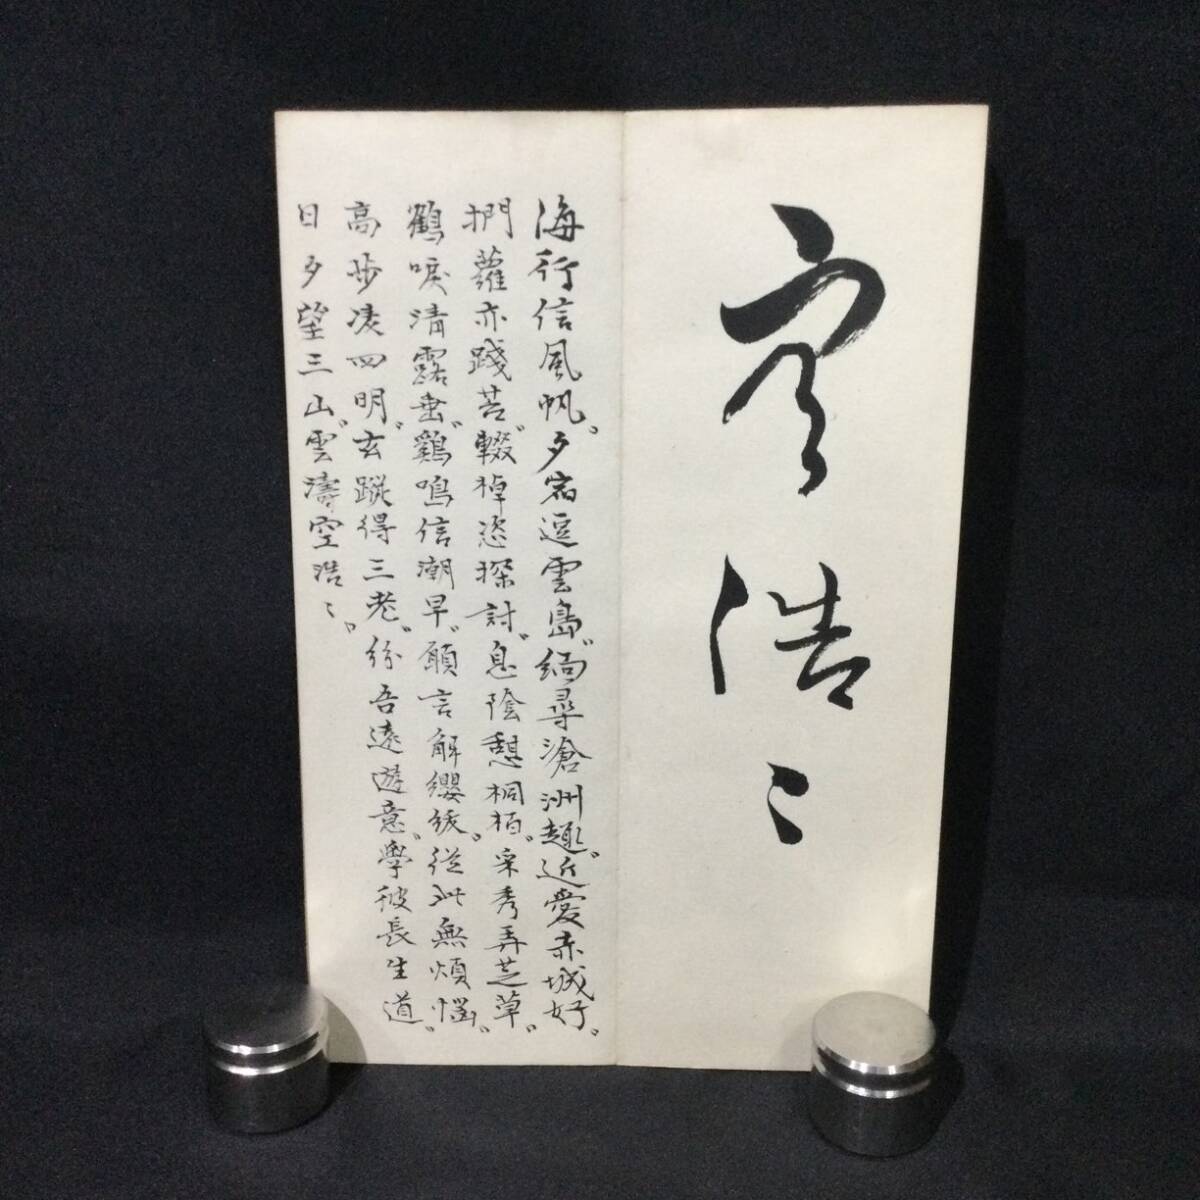 空浩〻
海行信風帆。夕宿逗雲島。緬尋滄洲趣。近愛赤城好。
捫蘿亦踐苔。輟棹恣探討。息陰憩桐柏。采秀弄芝草。
鶴唳清露垂。鷄鳴信潮早。願言解纓紱。從此無煩惱。
高步凌四明。玄蹤得三老。紛吾遠遊意。學彼長生道。
日夕望三山。雲濤空浩〻。